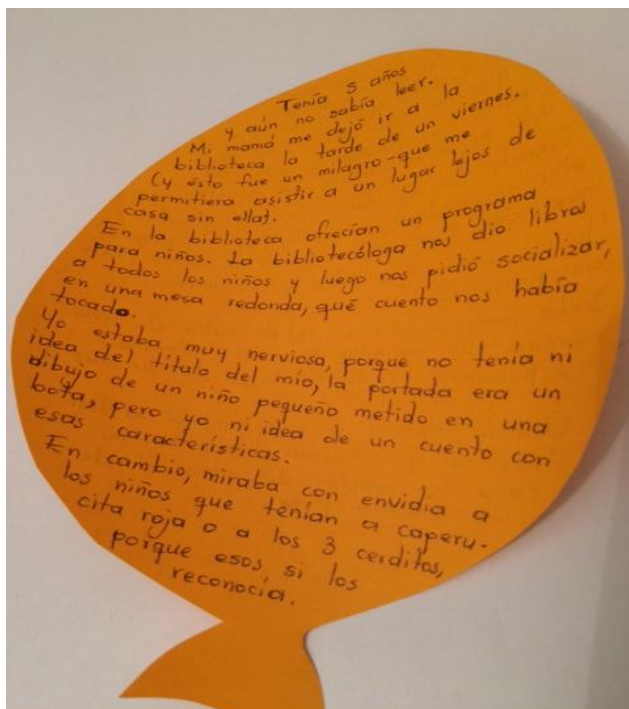 Tenía 5 años
y aún no sabía leer.
Mi mamá me dejó ir a la
biblioteca la tarde de un viernes.
(y ésto fue un milagro-que me
permitiera asistir a un lugar lejos de
casa sin ella).
En la biblioteca ofrecían un programa
para niños. La bibliotecóloga nos dio libros
a todos los niños y luego nos pidió socializar,
en una mesa redonda, qué cuento nos había
tocado.
Yo estaba muy nerviosa, porque no tenía ni
idea del título del mío, la portada era un
dibujo de un niño pequeño metido en una
bota, pero yo ni idea de un cuento con
esas características.
En cambio, miraba con envidia a
los niños que tenían a caperu-
cita roja o a los 3 cerditos,
porque esos, si los
reconocía.